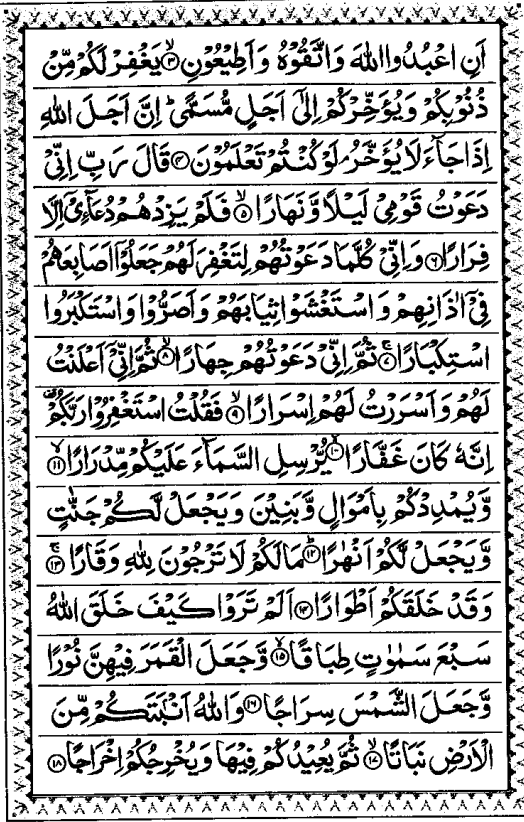 اَنِ اعْبُدُوا اللّٰهَ وَاتَّقُوْهُ وَاَطِيْعُوْنِ ۙ‏﴿۳﴾ يَغْفِرْ لَكُمْ مِّنْ
ذُنُوْبِكُمْ وَيُؤَخِّرْكُمْ اِلٰٓى اَجَلٍ مُّسَمًّى ؕ اِنَّ اَجَلَ اللّٰهِ
اِذَا جَآءَ لَا يُؤَخَّرُ ۘ لَوْ كُنْتُمْ تَعْلَمُوْنَ ﴿۴﴾ قَالَ رَبِّ اِنِّىْ
دَعَوْتُ قَوْمِىْ لَيْلًا وَّنَهَارًا ۙ﴿۵﴾ فَلَمْ يَزِدْهُمْ دُعَآءِىْۤ اِلَّا
فِرَارًا ﴿۶﴾ وَاِنِّىْ كُلَّمَا دَعَوْتُهُمْ لِتَغْفِرَ لَهُمْ جَعَلُوْۤا اَصَابِعَهُمْ
فِىْۤ اٰذَانِهِمْ وَاسْتَغْشَوْا ثِيَابَهُمْ وَاَصَرُّوْا وَاسْتَكْبَرُوا
اسْتِكْبَارًا ۚ﴿۷﴾ ثُمَّ اِنِّىْ دَعَوْتُهُمْ جِهَارًا ۙ﴿۸﴾ ثُمَّ اِنِّىْۤ اَعْلَنْتُ
لَهُمْ وَاَسْرَرْتُ لَهُمْ اِسْرَارًا ۙ﴿۹﴾ فَقُلْتُ اسْتَغْفِرُوْا رَبَّكُمْ ؕ
اِنَّهٗ كَانَ غَفَّارًا ۙ﴿۱۰﴾ يُّرْسِلِ السَّمَآءَ عَلَيْكُمْ مِّدْرَارًا ۙ﴿۱۱﴾
وَّيُمْدِدْكُمْ بِاَمْوَالٍ وَّبَنِيْنَ وَيَجْعَلْ لَّكُمْ جَنّٰتٍ
وَّيَجْعَلْ لَّكُمْ اَنْهٰرًا ؕ﴿۱۲﴾ مَا لَكُمْ لَا تَرْجُوْنَ لِلّٰهِ وَقَارًا ۚ﴿۱۳﴾
وَقَدْ خَلَقَكُمْ اَطْوَارًا ﴿۱۴﴾ اَلَمْ تَرَوْا كَيْفَ خَلَقَ اللّٰهُ
سَبْعَ سَمٰوٰتٍ طِبَاقًا ۙ﴿۱۵﴾ وَّجَعَلَ الْقَمَرَ فِيْهِنَّ نُوْرًا
وَّجَعَلَ الشَّمْسَ سِرَاجًا ﴿۱۶﴾ وَاللّٰهُ اَنْۢبَتَكُمْ مِّنَ
الْاَرْضِ نَبَاتًا ۙ﴿۱۷﴾ ثُمَّ يُعِيْدُكُمْ فِيْهَا وَيُخْرِجُكُمْ اِخْرَاجًا ﴿۱۸﴾